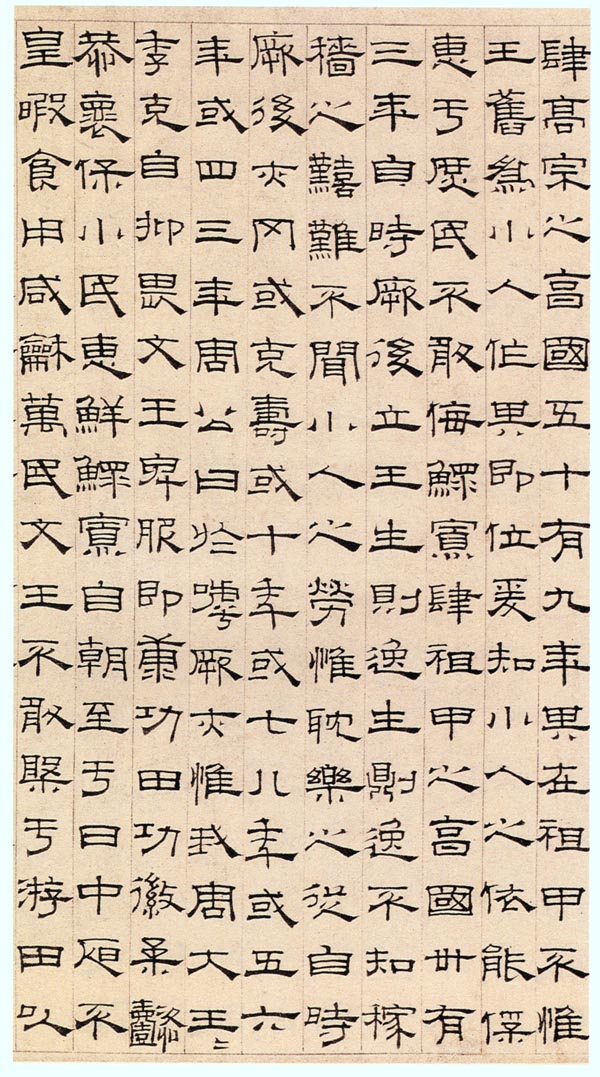 肆高宗之亯國五十有九年其在祖甲不惟
王舊為小人作其即位爰知小人之依能保
惠于庶民不敢侮鰥寡肆祖甲之亯國卅有
三年自時厥後立王生則逸生則逸不知稼
穡之囏難不聞小人之勞惟耽樂之從自時
厥後亦罔或克壽或十年或七八年或五六
年或四三年周公曰於嘑厥亦惟我周大王〻
季克自抑畏文王卑服即康功田功徽柔懿
恭褱保小民惠鮮鰥寡自朝至于日中昃不
皇暇食用咸龢萬民文王不敢盤于游田以